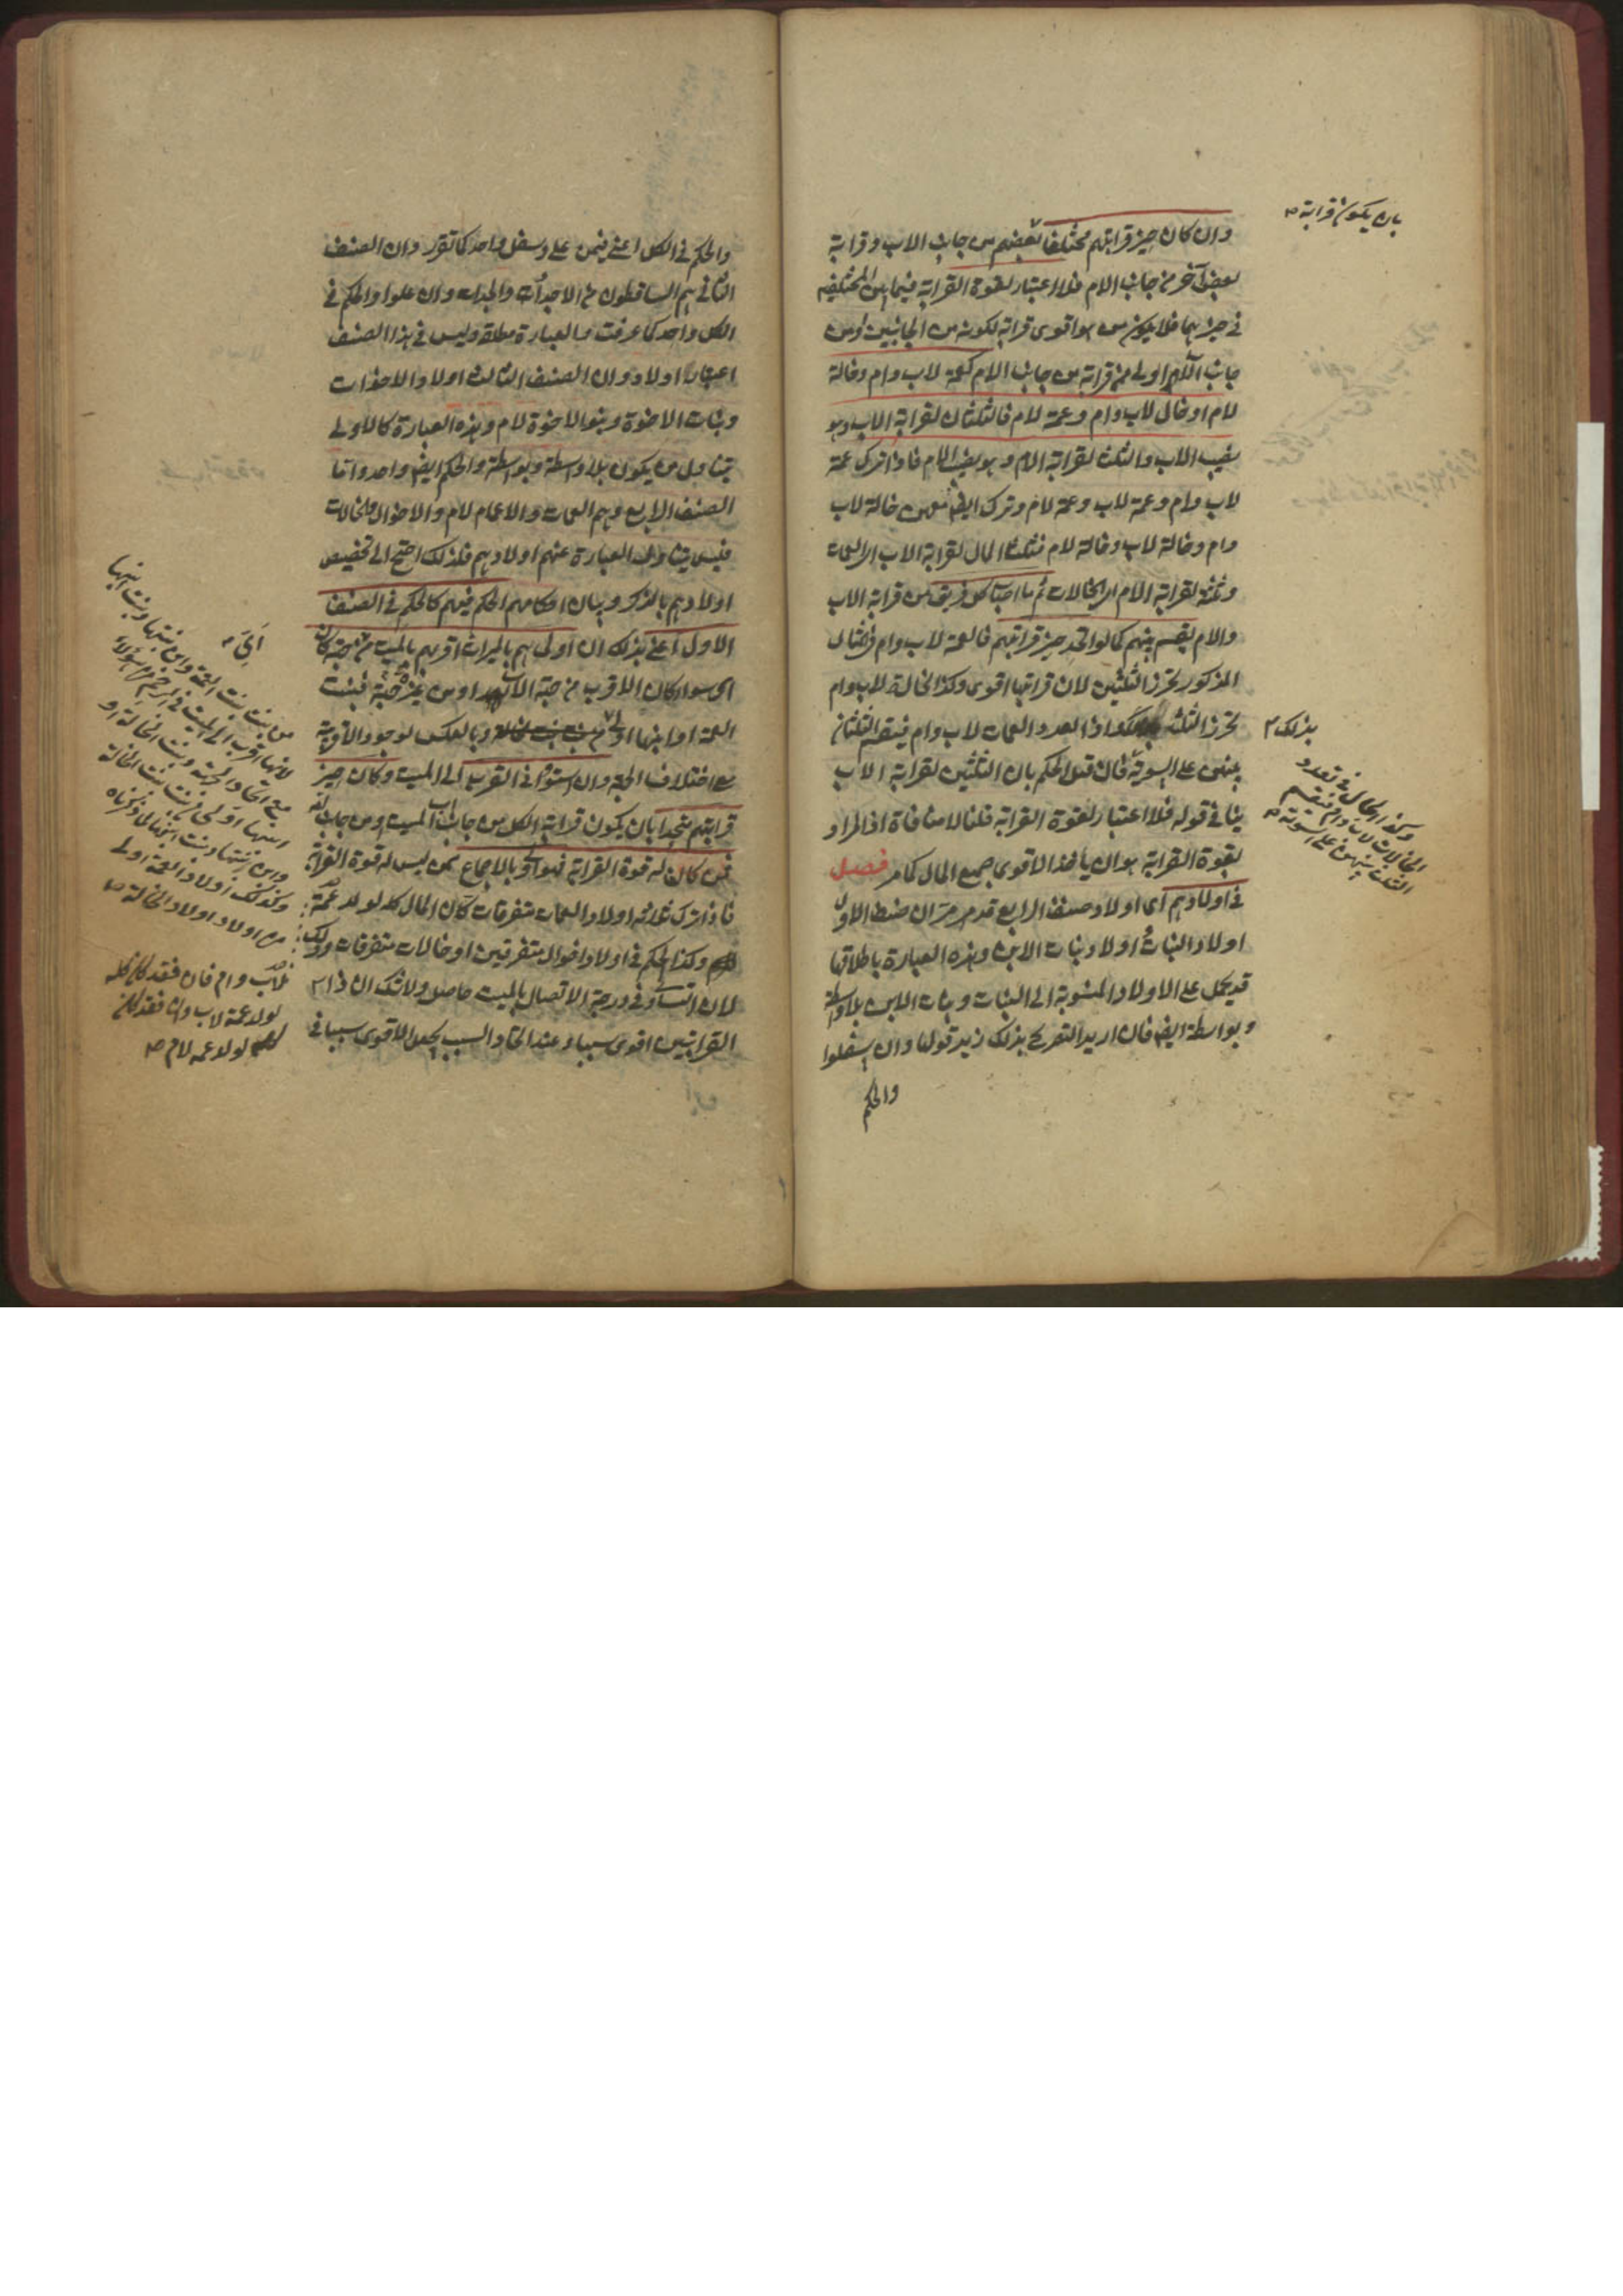 وان كان حيز قرابتهم مختلفا بعضهم من جانب الاب وقرابة
بعض آخر من جانب الام فلا اعتبار لقوة القرابة فيما بين المختلفين
في حيزهما فلا يكون من هو اقوى قرابة لكونه من الجانبين او من
جانب الاب اولى ممن قرابته من جانب الام كعمة لاب وام وخالة
لام او خال لاب وام وعمة لام فالثلثان لقرابة الاب وهو
نصيب الاب والثلث لقرابة الام وهو نصيب الام فاذا ترك عمة
لاب وام وعمة لاب وعمة لام وترك ايضا معهن خالة لاب
وام وخالة لاب وخالة لام فثلثا المال لقرابة الاب اى العمات
وثلثه لقرابة الام اى الخالات ثم ما اصاب كل فريق من قرابة الاب
والام يقسم بينهم كما لو اتحد حيز قرابتهم فالعمة لاب وام في المثال
المذكور تحرز الثلثين لان قرابتها اقوى وكذا الخالة لاب وام
تحرز الثلث واذا تعدد العمات لاب وام فيقسم الثلثان
بينهن على السوية فان قيل الحكم بان الثلثين لقرابة الاب
ينافي قوله فلا اعتبار لقوة القرابة قلنا لا منافاة اذ المراد
بقوة القرابة هو ان يأخذ الاقوى جميع المال كما مر فصل
في اولادهم اى اولاد صنف الرابع قدم مر ان ضبط الاول
اولاد البنات واولاد بنات الابن وهذه العبارة باطلاقها
قد يحمل على الاولاد المنسوبة الى البنات وبنات الابن بلا واسطة
وبواسطة ايضا فان اريد التصريح بذلك زيد قولنا وان سفلوا
والحكم
بان يكون قرابة صح
بذلك
وكذا الحال في تعدد
الخالات لاب وام فيقسم
الثلث بينهن على السوية صح
والحكم في الكل اعنى فيمن على وسفل واحد كما تقرر وان الصنف
الثانى هم الساقطون من الاجداد والجدات وان علوا والحكم في
الكل واحد كما عرفت فالعبارة مطلقة وليس في هذا الصنف
اعتبار اولاد وان الصنف الثالث اولاد الاخوات
وبنات الاخوة وبنو الاخوة لام وهذه العبارة كالاولى
يتناول من يكون بلا واسطة وبواسطة والحكم ايضا واحد واما
الصنف الرابع وهم العمات والاعمام لام والاخوال والخالات
فليس يتناول العبارة عنهم اولادهم فلذلك احتج الى تخصيص
اولادهم بالذكر وبيان احكامهم الحكم فيهم كالحكم في الصنف
الاول اعنى بذلك ان اولى هم بالميراث اقربهم بالميت من اى جهة كان
اى سواء كان الاقرب من جهة الاب او من غير جهته فبنت
العمة او ابنها اولى من بنت بنت الخالة وبالعكس لوجود الاقربية
مع اختلاف الجهة وان استووا في القرب الى الميت وكان حيز
قرابتهم متحدا بان يكون قرابة الكل من جانب اب الميت او من جانب امه
فمن كان له قوة القرابة فهو اولى بالاجماع ممن ليس له قوة القرابة
فاذا ترك ثلاثة اولاد العمات متفرقات كان المال كله لولد عمة
وكذا الحكم في اولاد اخوال متفرقين او خالات متفرقات وذلك
لان التساوى في درجة الاتصال بالميت حاصل ولا شك ان ذا
القرابتين اقوى سببا وعند اتحاد السبب يجعل الاقوى سببا في
من بنت بنت العمة وابن بنتها وبنت ابنها
لانها اقرب الى الميت في الرحم من هؤلاء
مع اتحاد الجهة وبنت الخالة او
ابنها اولى من بنت بنت الخالة
وابن بنتها وبنت ابنها لما ذكرناه
وكذلك اولاد العمة اولى
من اولاد اولاد الخالة صح
لاب وام فان فقد كان كله
لولد عمة لاب وان فقد كان
لولد عمة لام صح